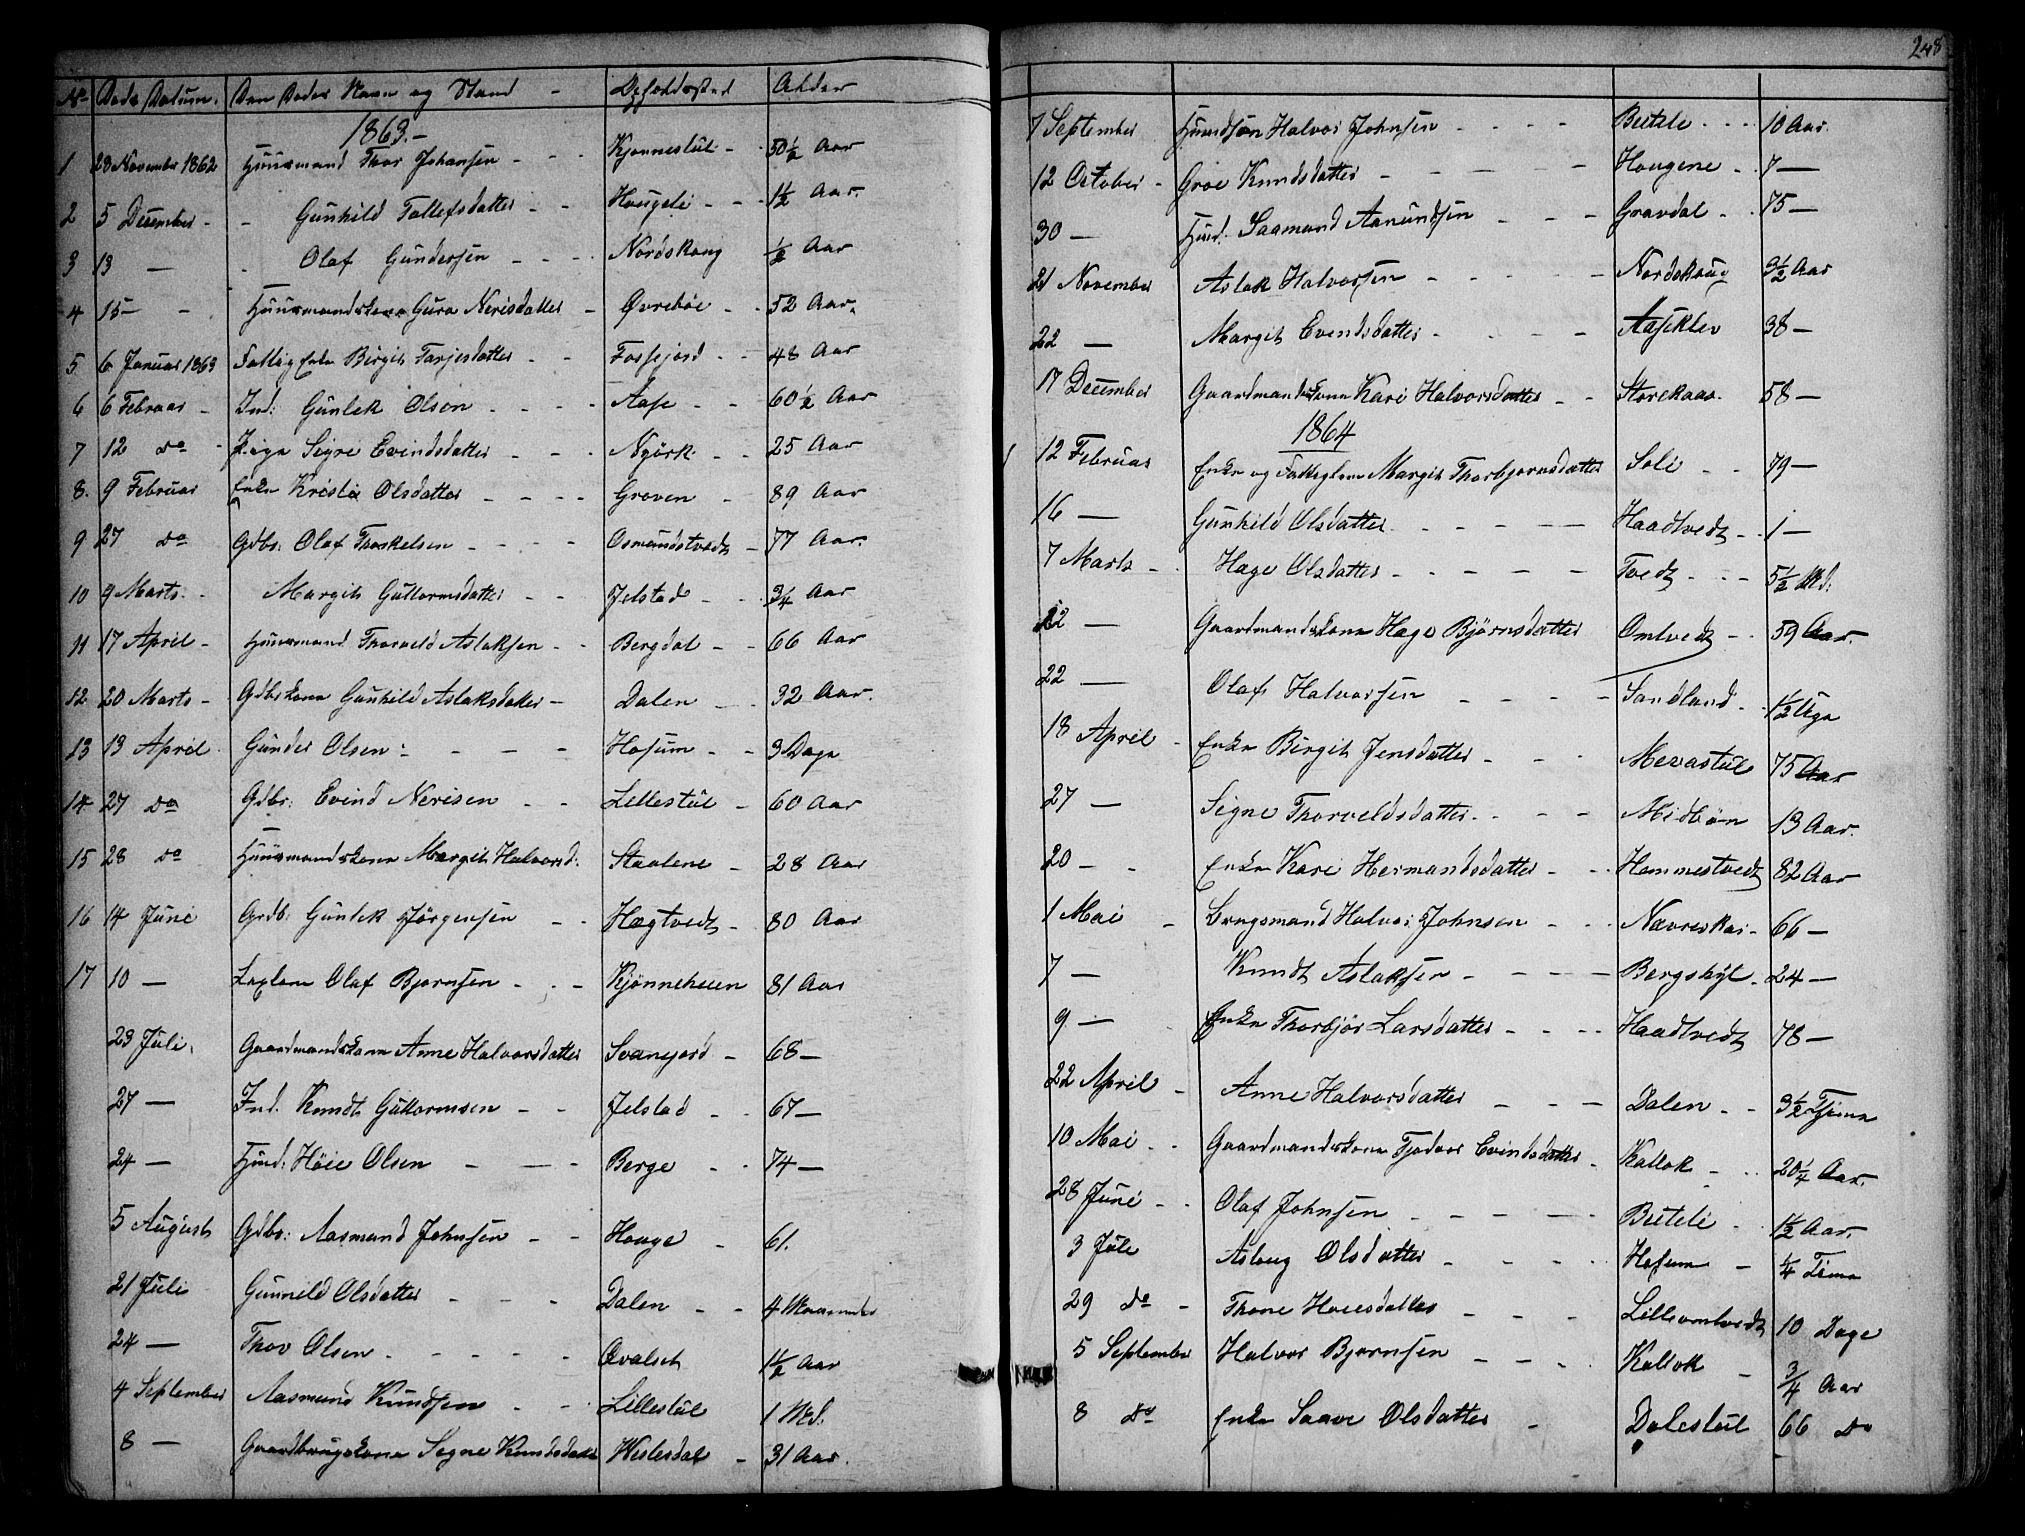 No. Döds Datum. Den Dödes Navn og Stand - Opholdssted Alder
1863.-
1 28 November 1862 Huusmand Thor Johansen - - - Kjonnestul - 50½ Aar
2 5 December - - Gunhild Tollefsdatter - - Hougeli - - - 1½ Aar.
3 13 — - Olaf Gundersen - - - - Nordskoug ½ Aar
4 15 — - Huusmandskone Guro Nerisdatter - Øvreböe - - 52 Aar.
5. 6 Januar 1863 Fattig Enke Birgit Tarjesdatter - - Fossejord - - 48 Aar
6 6 Februar - Ind: Gunlek Olsen - - - - Aase - - 60½ Aar
7 12 do - Pige Signe Evindsdatter - - - Nyörk - - 25 Aar
8. 9 Februar Enke Kristie Olsdatter - - - - Groven - 89 Aar
9 27 do Gdbr. Olaf Thorkelsen - - - - Osmundstvedt - 77 Aar.
10 9 Marts - - Margit Guttormsdatter - - Jelstad - - 3/4 Aar
11 17 April - Huusmand Thorveld Aslaksen - - Bergdal - - 66 Aar
12 20 Marts - Gdbrkone Gunhild Aslaksdatter - Dalen - - 32 Aar.
13 13 April Gunder Olsen - - - - Hofum - - 3 Dage
14 27 do Gdbr: Evind Nerisen - - Lillestul - 60 Aar
15 28 do Huusmandskone Margit Halvorsd: Staalene - 28 Aar
16 14 Juni Grdb: Gunlek Jörgensen - - Hægtvedt - 80 Aar
17 10 — Olaf Bjornsen - - - Kjönneheien 81 Aar
23 Juli. Gaardmandskone Anne Halvorsdatter Svanejord - 68 —
27 — Ind. Knudt Guttormsen - - Jelstad - - 67 —
24 — Huusd: Höie Olsen - - - Berge - - 74 —
5 August Gdbr: Aasmund Johnsen - - Houge - 61.
21 Juli Gunnild Olsdatter - - - Dalen - - 4 Maaneder
24 — Thov Olsen - - - - Qvalset 1½ Aar
4 September Aasmund Knudsen - - Lillestul 1 Md.
8 — Gaardbrugskone Signe Knudsdatter Weslesdal - 31 Aar.
248
7 September Huusdsøn Halvor Johnsen - - - - Buteli - - - 10 Aar.
12 October - Groe Knudsdatter - - - - - Hougene - - 7 —
30 — Huusd. Saamund Aanundsen - - - Gravdal - - 75 —
21 November Aslak Halvorsen - - - - - Nordskoug 9½ Aar
22 — Margit Evendsdatter - - - - Aaseklev 38 —
17 December Gaardmandskone Kari Halvorsdatter - - Storekaas - 58 —
1864
12 Februar Enke og Fattiglem Margit Thorbjornsdatter Soli - - 79 —
16 — Gunhild Olsdatter - - - - Haadtvedt - - 1 —
7 Marts - Hæge Olsdatter - - - - - Tvedt - - - 5½ Md.
22 — Gaardmandskone Hæge Björnsdatter Omtvedt - - 59 Aar.
22 — Olaf Halvorsen - - - - Sandland - - 1½ Uge
18 April - Enke Birgit Jensdatter - - - Mevastul 75 Aar
27 — Signe Thorveldsdatter - - - - Midbön 13 Aar.
20 - - Enke Kari Hermandsdatter - - - Hommestvedt 82 Aar
1 Mai - Lægsmand Halvor Johnsen - - - Næverkas - 66 —
7 — Knudt Aslaksen - - - - Bergshyl - 24 —
9 — Enke Thorbjör Larsdatter - - - - Haadtvedt 78 —
22 April - Anne Halvorsdatter - - - Dalen - - 3½ Time
10 Mai - - Gaardmandskone Tjodvor Evindsdatter - Kallok - - - 20¼ Aar.
28 Juni - - Olaf Johnsen - - - - - Buteli - - 1½ Aar.
3 Juli Aslaug Olsdatter - - - - Hofum - ¼ Time
29 do - Thone Hoiesdatter - - - Lilleomtvedt 10 Dage
5 September Halvor Bjornsen - - - Kallok - 3/4 Aar
8 do Enke Saave Olsdatter - Dalestul 66 do